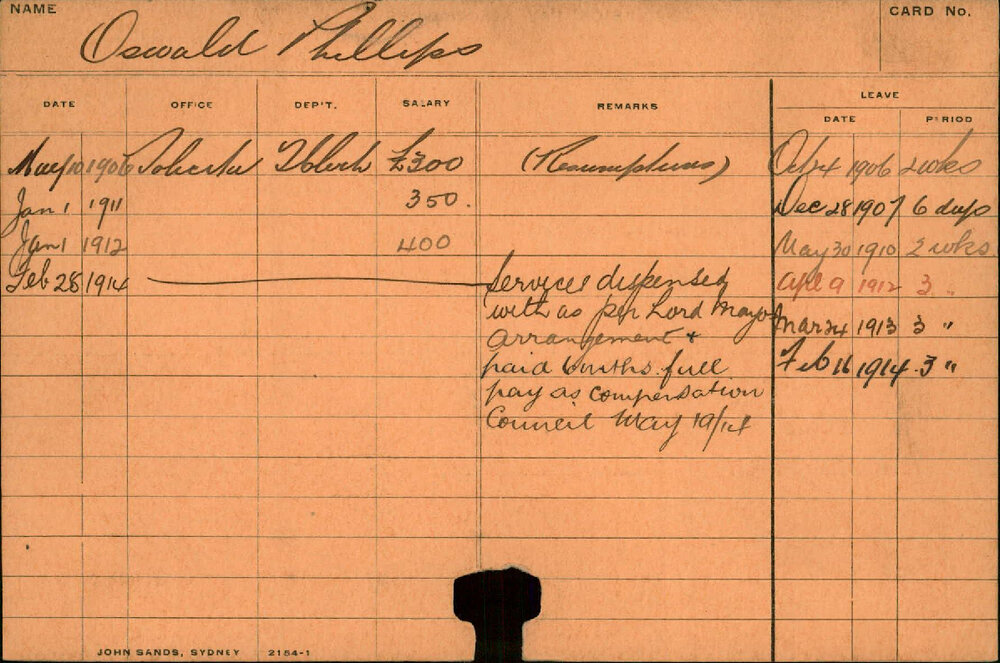 NAME
Oswald Phillips
CARD No.
DATE OFFICE DEP'T. SALARY REMARKS LEAVE
DATE PERIOD
May 10 1906 £300 (Resumptions) Oct 4 1906 2 wks
Jan 1 1911 350. Dec 28 1907 6 days
Jan 1 1912 400 May 30 1910 2 wks.
Feb 28 1914 Services dispensed Apl 9 1912 3 "
with as per Lord Mayors Mar 24 1913 3 "
arrangement &
paid 6 mths. full Feb 16 1914. 3 "
pay as compensation
Council May 19/14
JOHN SANDS, SYDNEY 2184-1